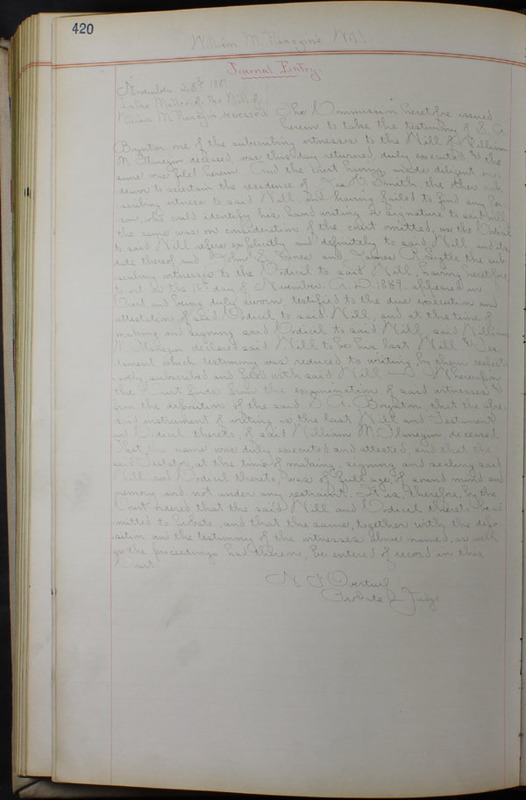 420
William M. Flanegin's Will
Journal Entry
November 25th 1889
In the Matter of the Will of
William M. Flanegin deceased
The Commission heretofore issued
herein to take the testimony of S. A.
Boynton one of the subscribing witnesses to the Will of William
M. Flanegin deceased, was this day returned duly executed & the
same was filed herein. And the Court having made diligent en-
deavor to ascertain the residence of Smith the other sub-
scribing witness to said Will, and having failed to find any per-
son, who could identify his hand writing or signature to said Will
the same was on consideration of the court omitted, as the Codicil
to said Will refers explicitly and definitely to said Will and its
date thereof and John E. and James A. Lytle the sub-
scribing witnesses to the Codicil to said Will, having heretofore
to wit on the 15th day of November A. D. 1889, appeared in
Court and being duly sworn testified to the due execution and
attestation of said Codicil to said Will, and at the time of
making and signing said Codicil to said Will, said William
M. Flanegin declared said Will to be his last Will & Tes-
tament which testimony was reduced to writing by them respect-
ively subscribed and filed with said Will. Whereupon
the Court finds from the examination of said witnesses &
from the deposition of the said S. A. Boynton that the afore-
said instrument of writing is the last Will and Testament
and Codicil thereto, of said William M. Flanegin deceased
That the same was duly executed and attested, and that the
said Testator at the time of making, signing and sealing said
Will and Codicil thereto, was of full age, of sound mind and
memory and not under any restraint. It is therefore, by the
Court ordered that the said Will and Codicil thereto be ad-
mitted to Probate, and that the same, together with the depo-
sition and the testimony of the witnesses above named, as well
as the proceedings had therein, be entered of record in this
Court.
Probate Judge